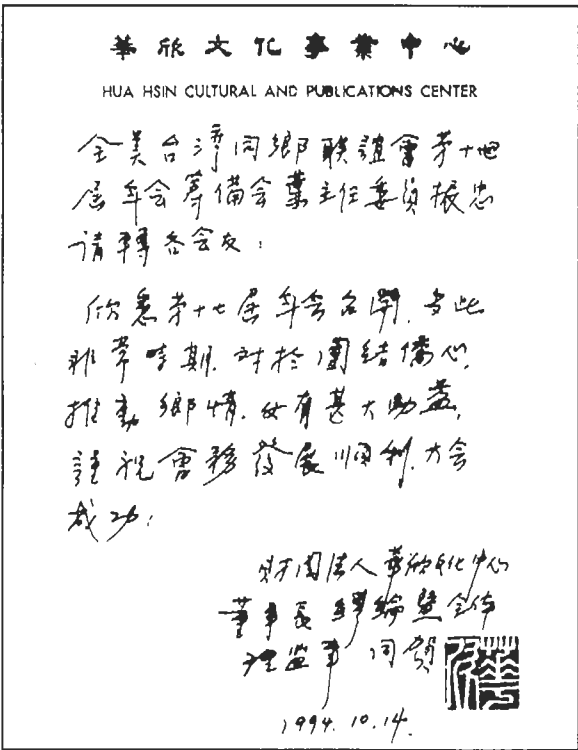 華欣文化事業中心
HUA HSIN CULTURAL AND PUBLICATIONS CENTER
全美台灣同鄉聯誼會第十七
屆年会籌備会葉主任委員振忠
請轉各会友:
欣悉第十七屆年会召開.当此
非常時期.対於團結僑心.
推動鄉情.必有甚大助益.
謹祝會務發展順利.大会
成功:
財團法人華欣文化中心
董事長 綸暨全体
理監事 同賀
華欣
1994.10.14.